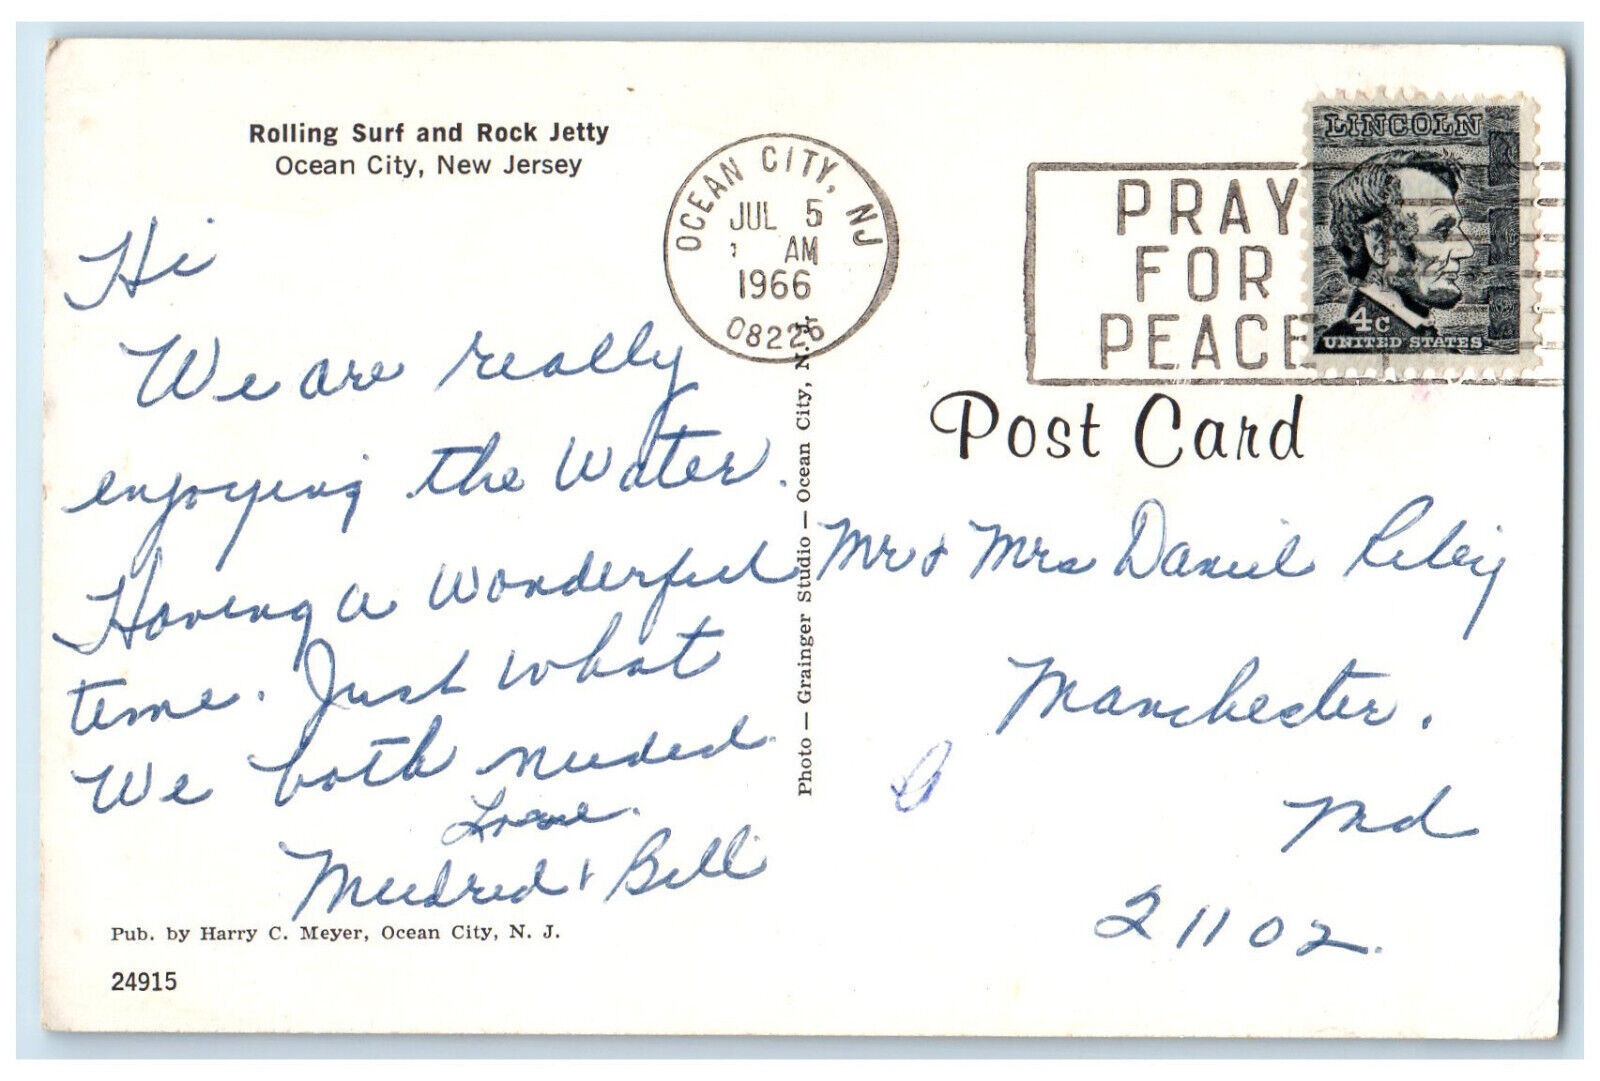 Rolling Surf and Rock Jetty
Ocean City, New Jersey
Hi
We are really
enjoying the water.
Having a wonderful
time. Just what
We both needed.
Love.
Mildred & Bill
Pub. by Harry C. Meyer, Ocean City, N. J.
24915
Photo — Grainger Studio — Ocean City, N. J.
OCEAN CITY, NJ
JUL 5
1 AM
1966
08226
PRAY
FOR
PEACE
LINCOLN
4c
UNITED STATES
Post Card
Mr & Mrs Daniel Riley
Manchester.
Md
21102.